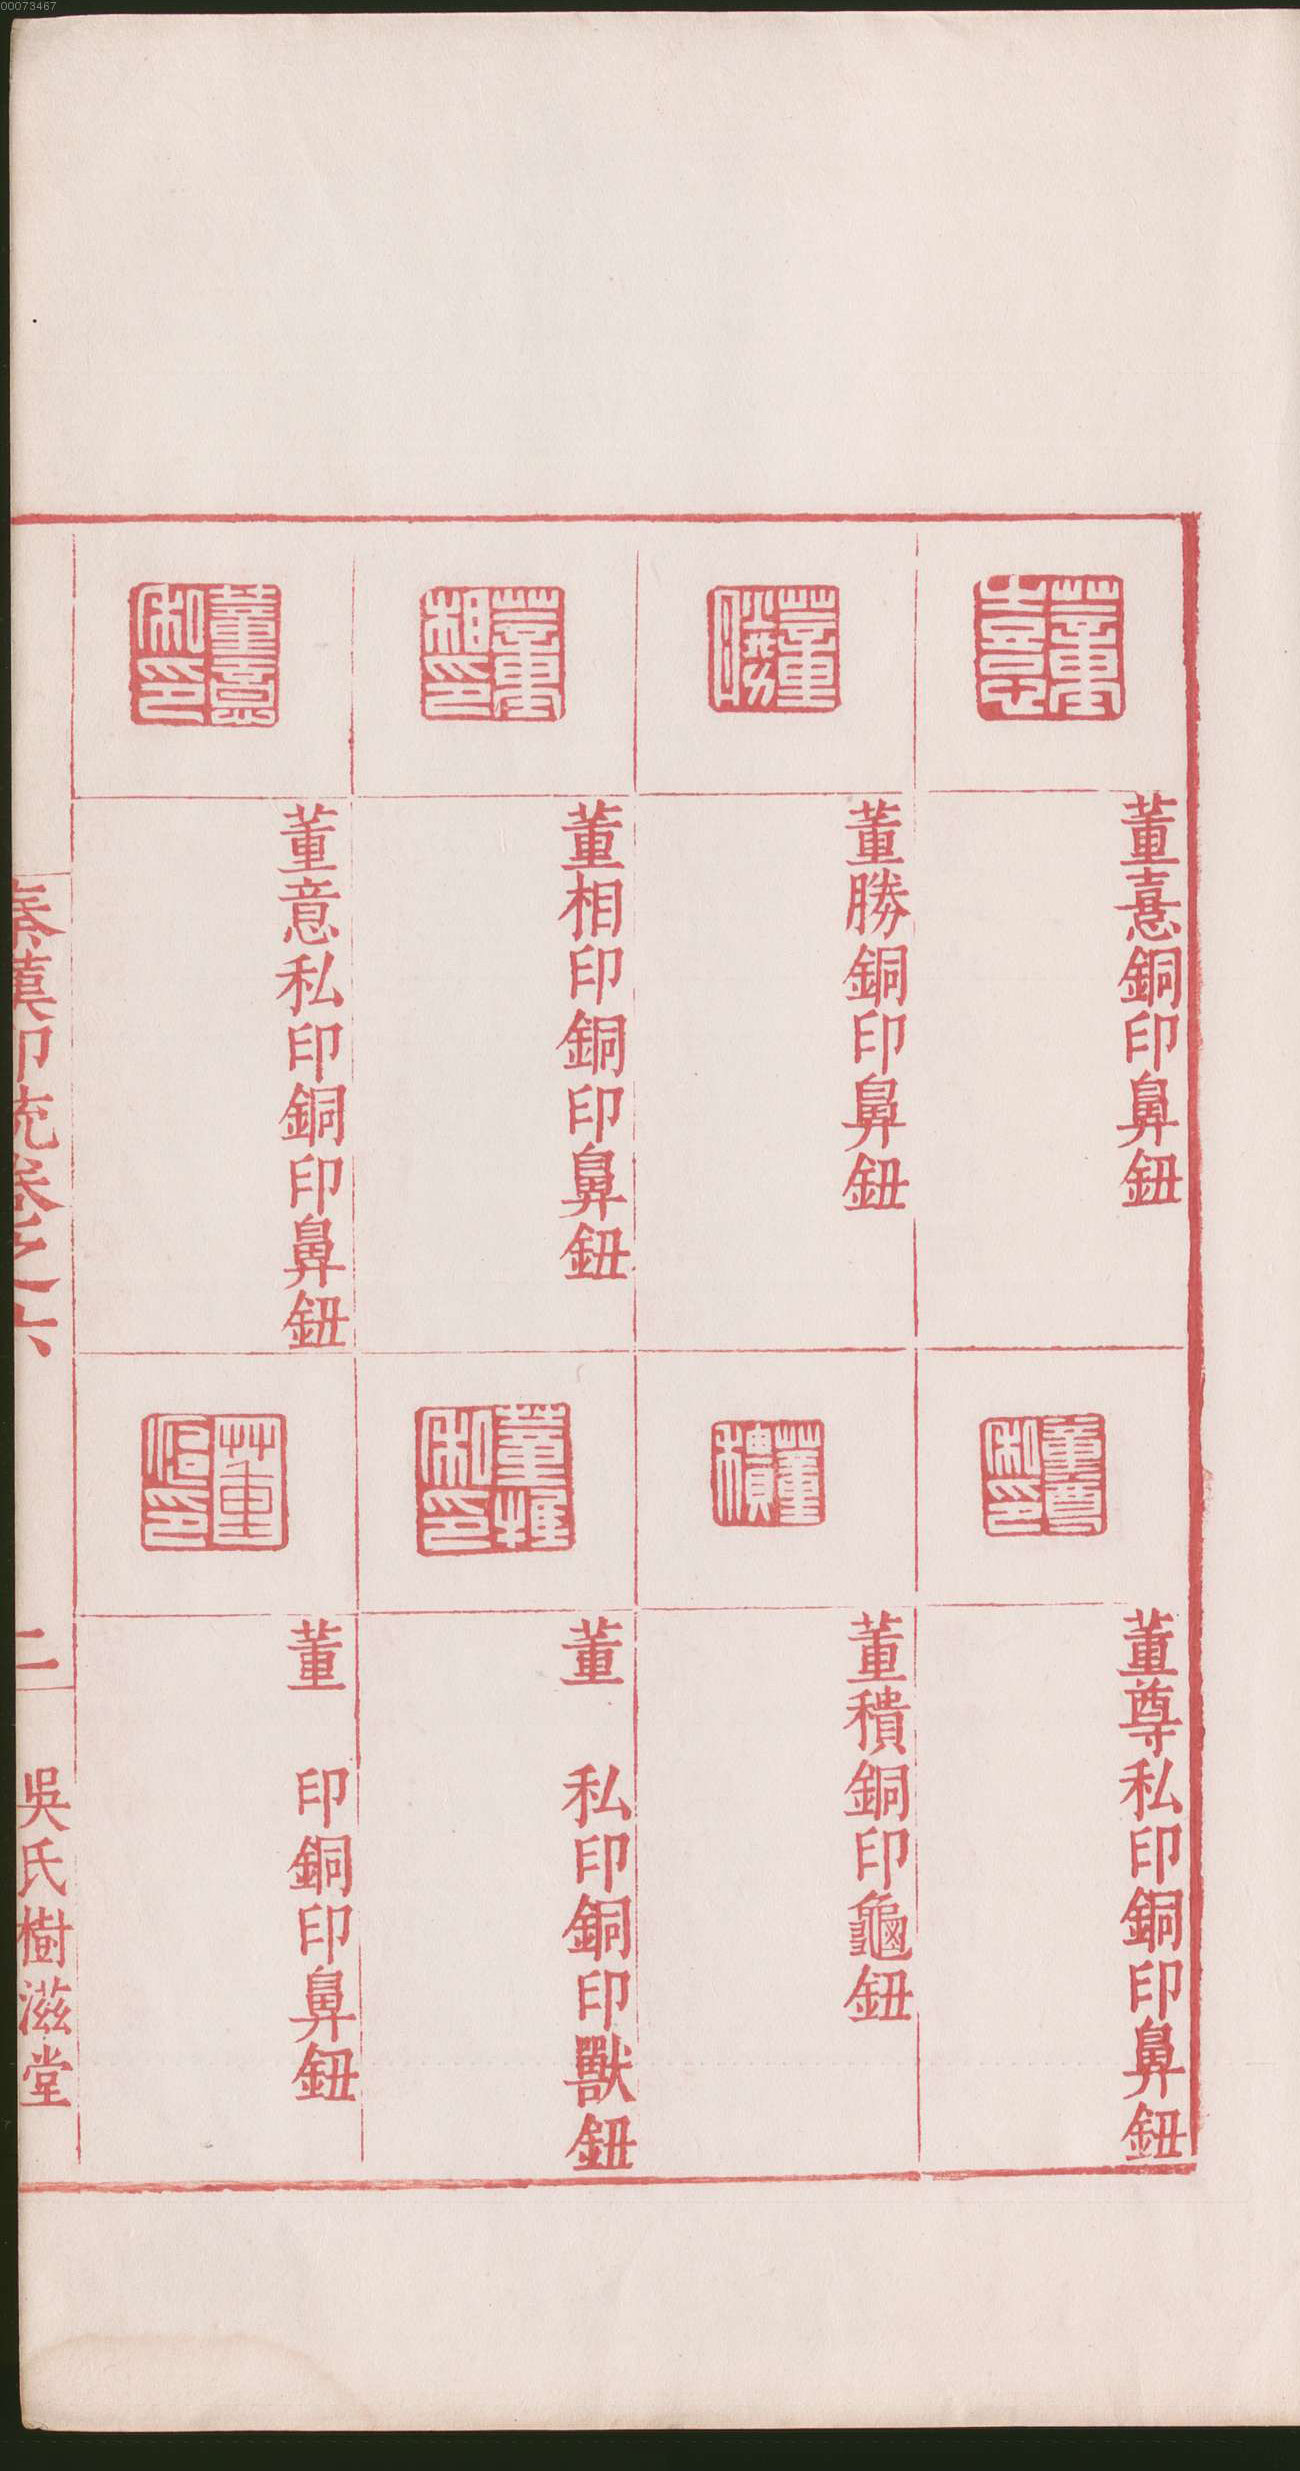 00073467
董憙
董憙銅印鼻鈕
董尊私印
董尊私印銅印鼻鈕
董勝
董勝銅印鼻鈕
董積
董積銅印龜鈕
董相印
董相印銅印鼻鈕
私印
董 私印銅印獸鈕
董意私印
董意私印銅印鼻鈕
董 印
董 印銅印鼻鈕
秦漢印統卷之六
二
吳氏樹滋堂